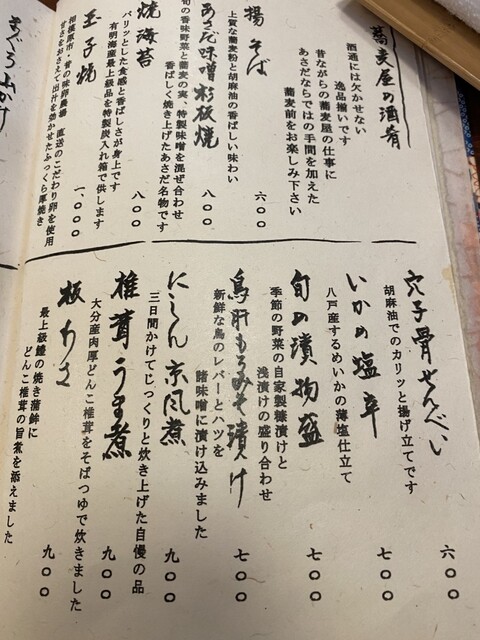 蕎麦屋の酒肴
酒通には欠かせない
逸品揃いです
昔ながらの蕎麦屋の仕事に
あさだならではの手間を加えた
蕎麦前をお楽しみ下さい
揚そば
上質な蕎麦粉と胡麻油の香ばしい味わい
六〇〇
あさだ味噌杉板焼
旬の香味野菜と蕎麦の実、特製味噌を混ぜ合わせ
香ばしく焼き上げたあさだ名物です
八〇〇
焼海苔
パリッとした食感と香ばしさが身上です
有明海産最上級品を特製炭入れ箱で供します
八〇〇
玉子焼
相模原市 昔の味卵農場 直送のこだわり卵を使用
甘さをおさえて出汁を効かせたふっくら厚焼き
一、〇〇〇
まぐろ山かけ
穴子骨せんべい
胡麻油でのカリッと揚げ立てです
六〇〇
いかの塩辛
八戸産するめいかの薄塩仕立て
七〇〇
旬の漬物盛
季節の野菜の自家製糠漬けと
浅漬けの盛り合わせ
七〇〇
鳥肝もろみそ漬け
新鮮な鳥のレバーとハツを
諸味噌に漬け込みました
七〇〇
にしん京風煮
三日間かけてじっくりと炊き上げた自慢の品
九〇〇
椎茸うま煮
大分産肉厚どんこ椎茸をそばつゆで炊きました
九〇〇
板わさ
最上級鐘の焼き蒲鉾に
どんこ椎茸の旨煮を添えました
九〇〇